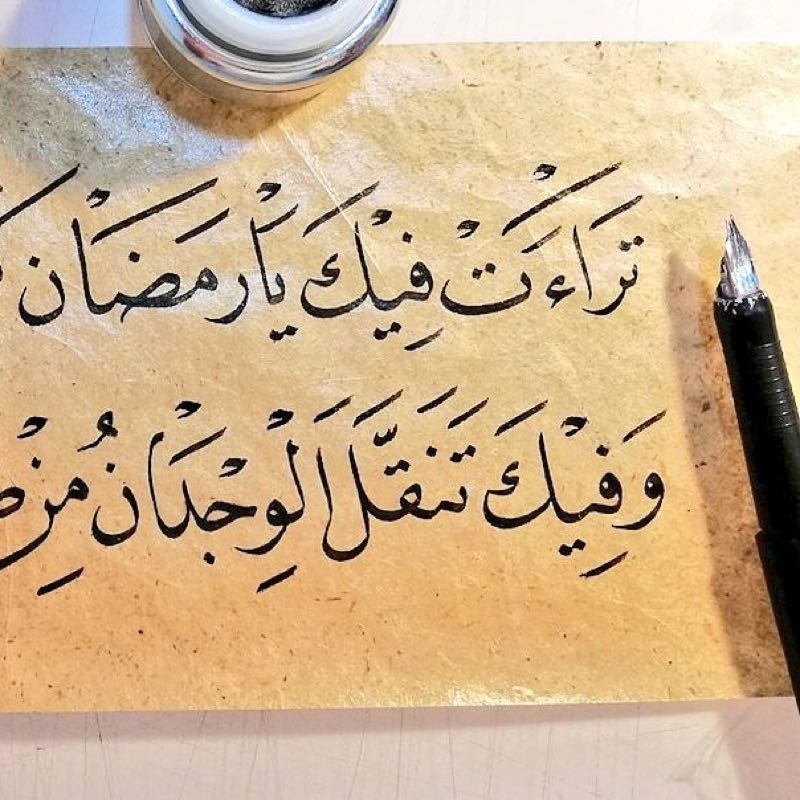 تَرَاءَتْ فِيْكَ يَاْرَمَضَاْن
وَفِيْكَ تَنَقَّلَ الْوِجْدَاْنُ مِنْ